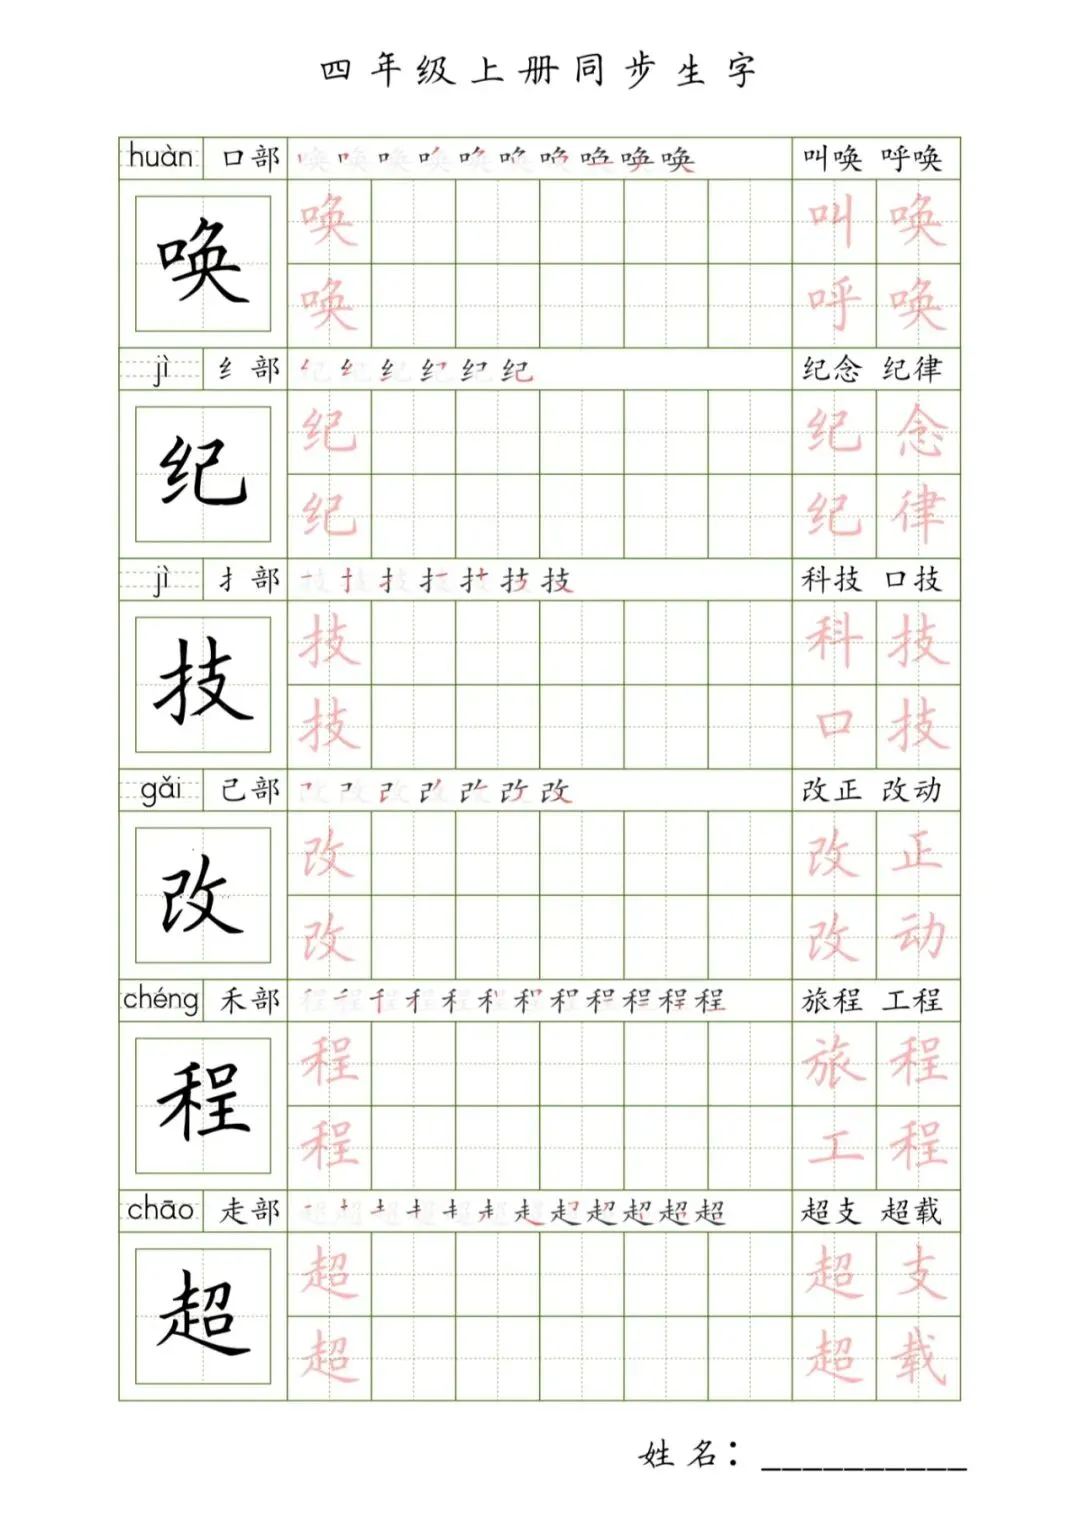 四年级上册同步生字
huàn 口部 唤 叫唤 呼唤
唤 唤 叫唤
唤 呼唤
jì 纟部 纪 纪念 纪律
纪 纪 纪念
纪 纪律
jì 扌部 技 科技 口技
技 技 科技
技 口技
gǎi 己部 改 改正 改动
改 改 改正
改 改动
chéng 禾部 程 旅程 工程
程 程 旅程
程 工程
chāo 走部 超 超支 超载
超 超 超支
超 超载
姓名：__________